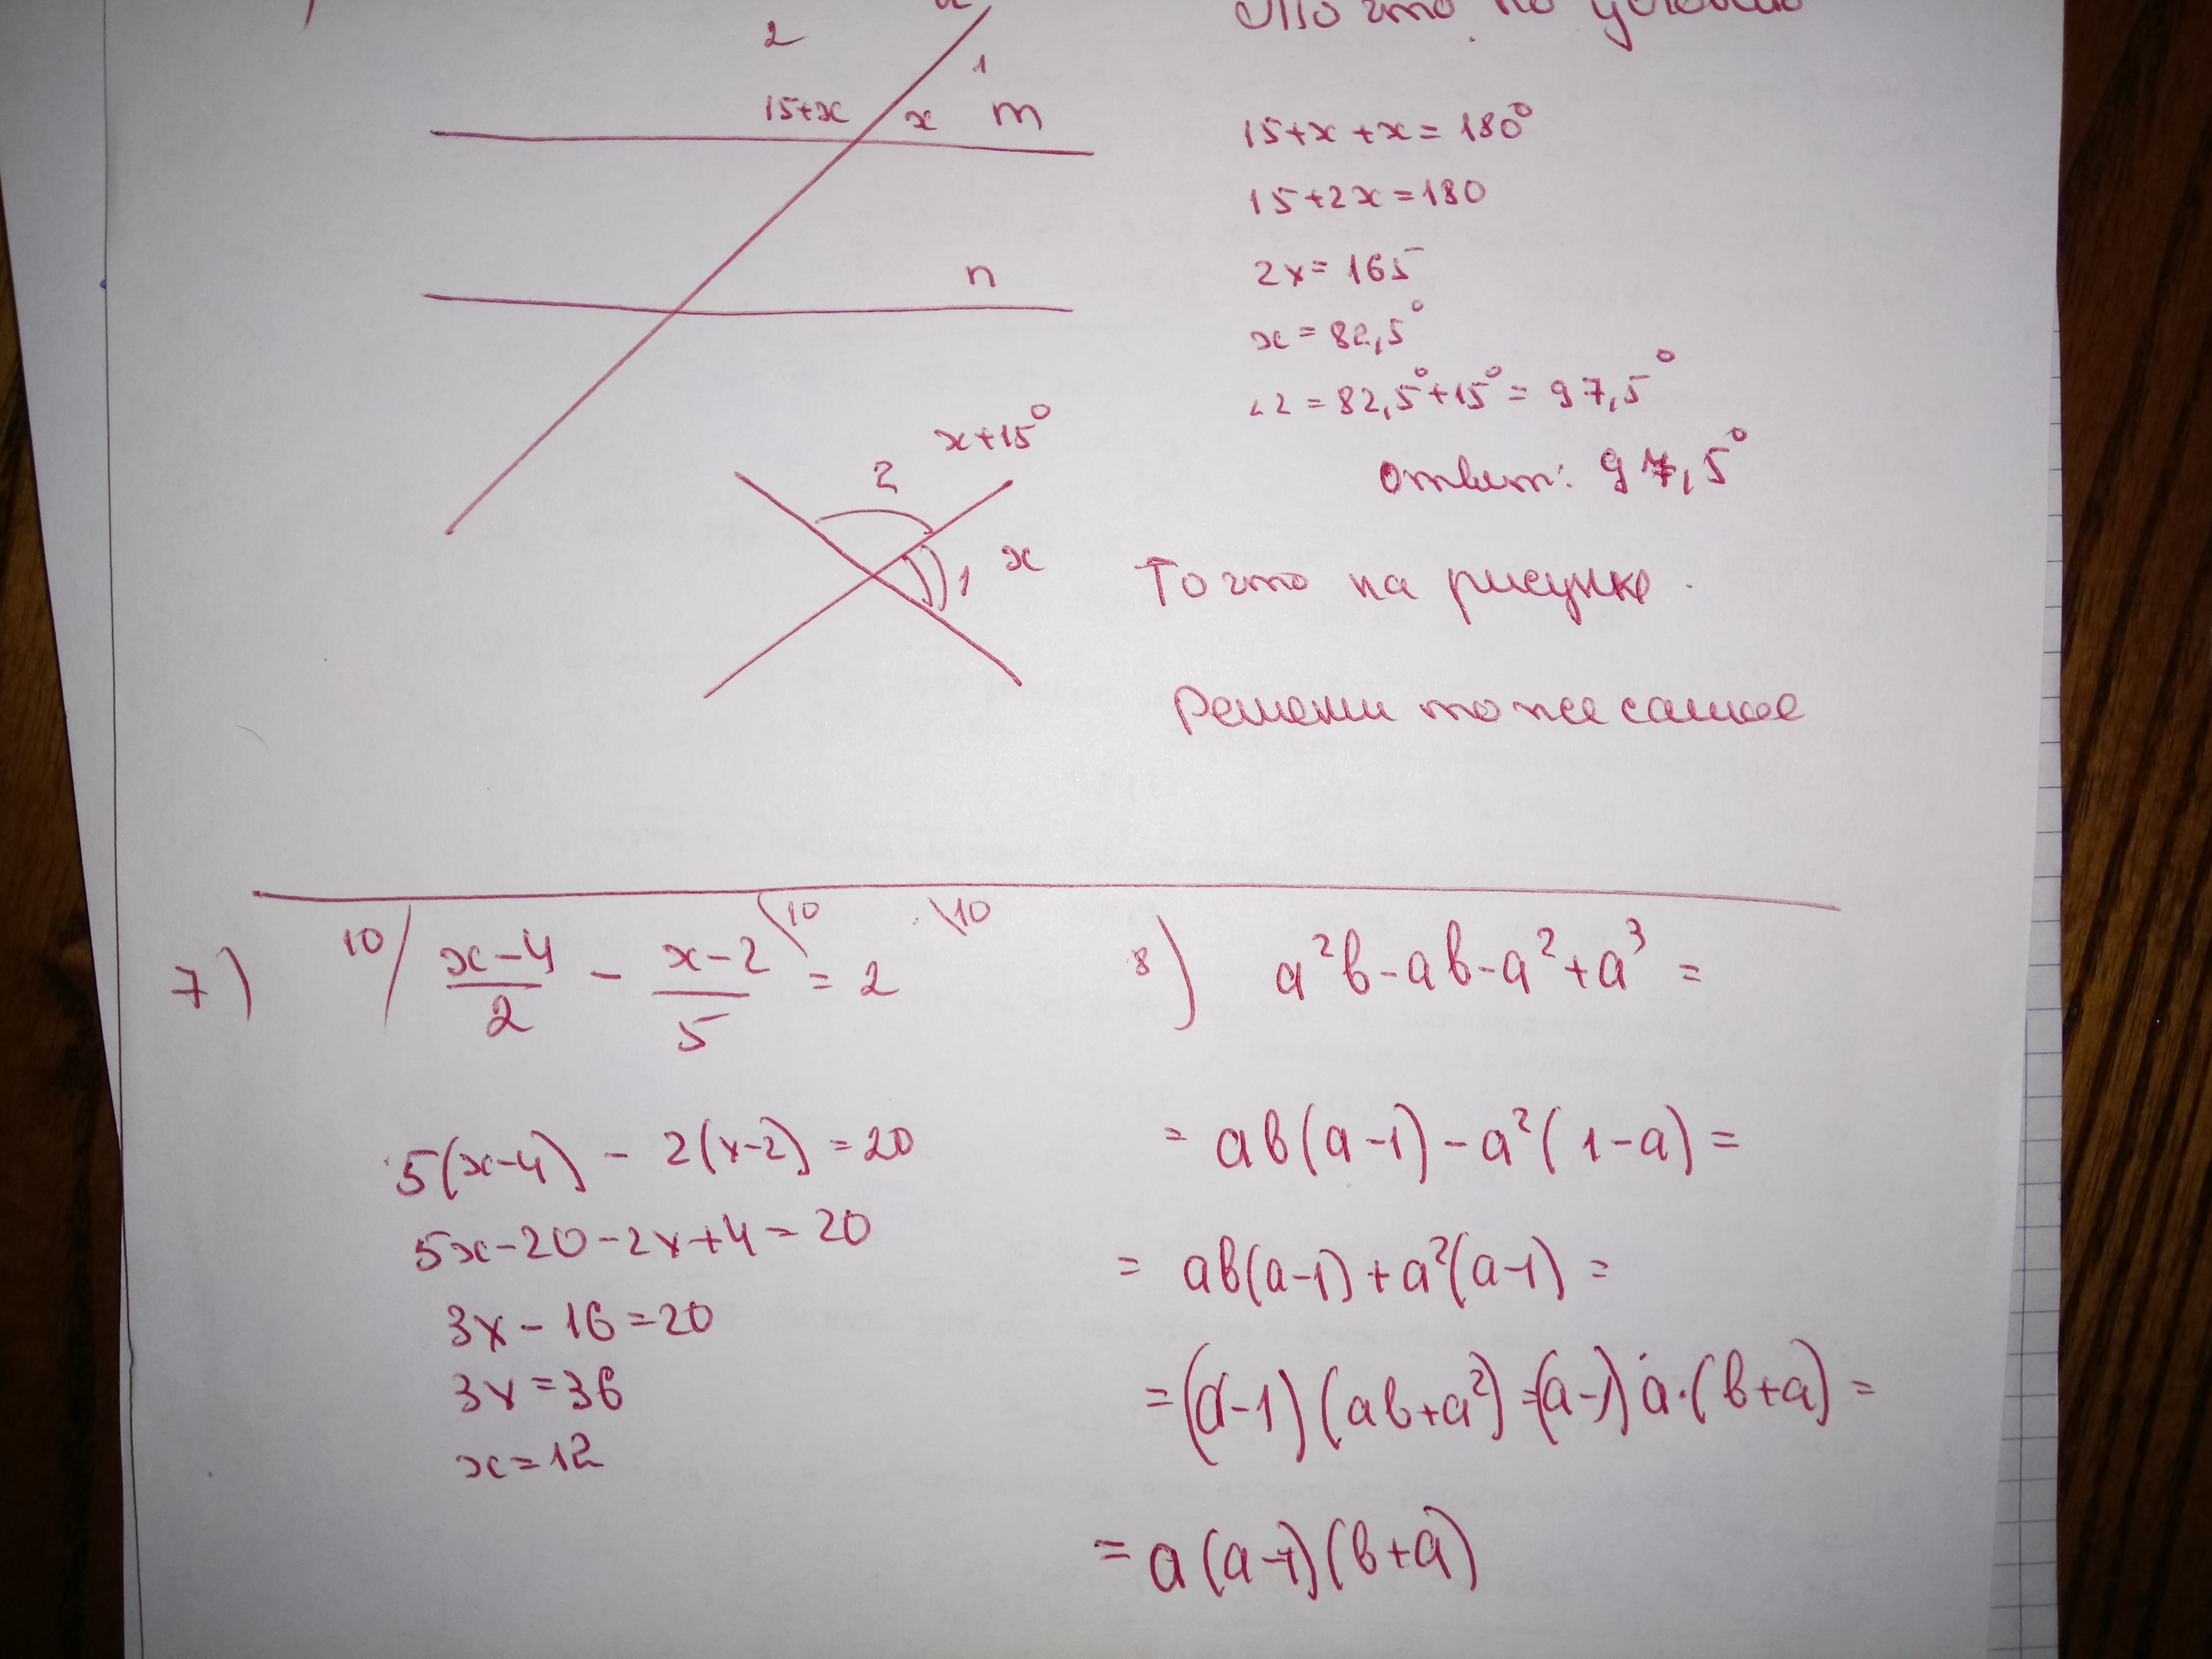 то что по условию
2
1
15+x x m
15+x+x=180°
15+2x=180
n
2x=165
x=82,5°
∠2=82,5°+15°=97,5°
x+15°
2
ответ: 97,5°
1 x
То что на рисунке.
Решение то же самое
7) 10/ (x-4)/2 - (x-2)/5 \10 = 2 \10
5(x-4) - 2(x-2) = 20
5x-20-2x+4=20
3x-16=20
3x=36
x=12
8) a²b-ab-a²+a³=
=ab(a-1)-a²(1-a)=
=ab(a-1)+a²(a-1)=
=(a-1)(ab+a²)=(a-1)a·(b+a)=
=a(a-1)(b+a)